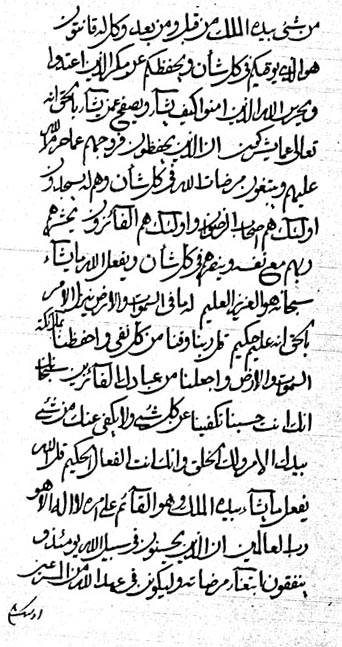 من شئ بيده الملك من قبل ومن بعد وكل له قانتون
هو الذي يوفيكم في كل شأن ويحفظكم عن كيد الذين اعتدوا
الله الذين امنوا كيف يشاء ويصفح عمن يشاء بالحق انه
تعالى عما يشركون ان الذين يحفظون فروجهم عما حرم الله
عليهم ويبتغون مرضات الله في كل شأن وهم له يسجدون
اولئك هم اصحاب الرضوان واولئك هم الفائزون
ربهم مع في كل شأن ويفعل الله ما يشاء
سبحانه هو العزيز العليم له ما في السموات والارض الامر
بالحق انه عليم حكيم قل ربنا وقنا من كل واحفظنا بملائكة
السموات والارض واجعلنا من عبادك الفائزين سبحانك
انك انت حسبنا تكفينا عن كل شئ ولا يكفي عنك من شئ
بيدك الامر ولك الخلق وانك انت الفعال الحكيم قل الله
يفعل ما يشاء بيده الملك وهو القائم على امره لا اله الا هو
رب العالمين ان الذين يحسنون في سبيل الله يومئذ و
ينفقون ابتغاء مرضاته وليكونن في عهد الله من